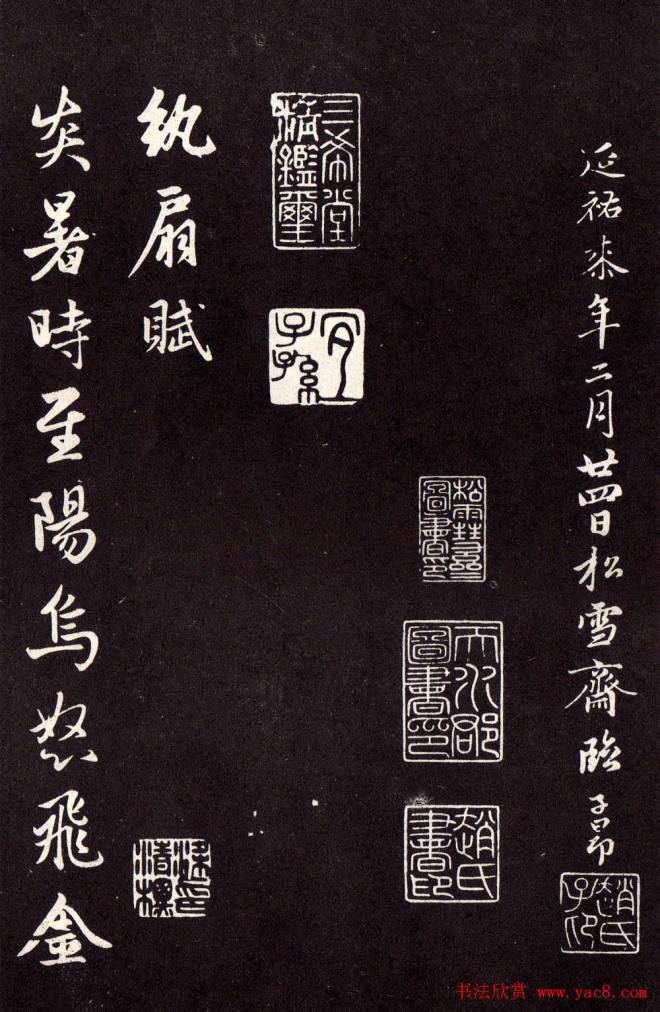 延祐柒年二月廿四日松雪齋臨子昂
趙氏子昂
松雪齋圖書印
天水郡圖書印
趙氏書印
三希堂精鑑璽
宜子孫
紈扇賦
梁清標印
炎暑時至陽烏怒飛金
书法欣赏 www.yac8.com